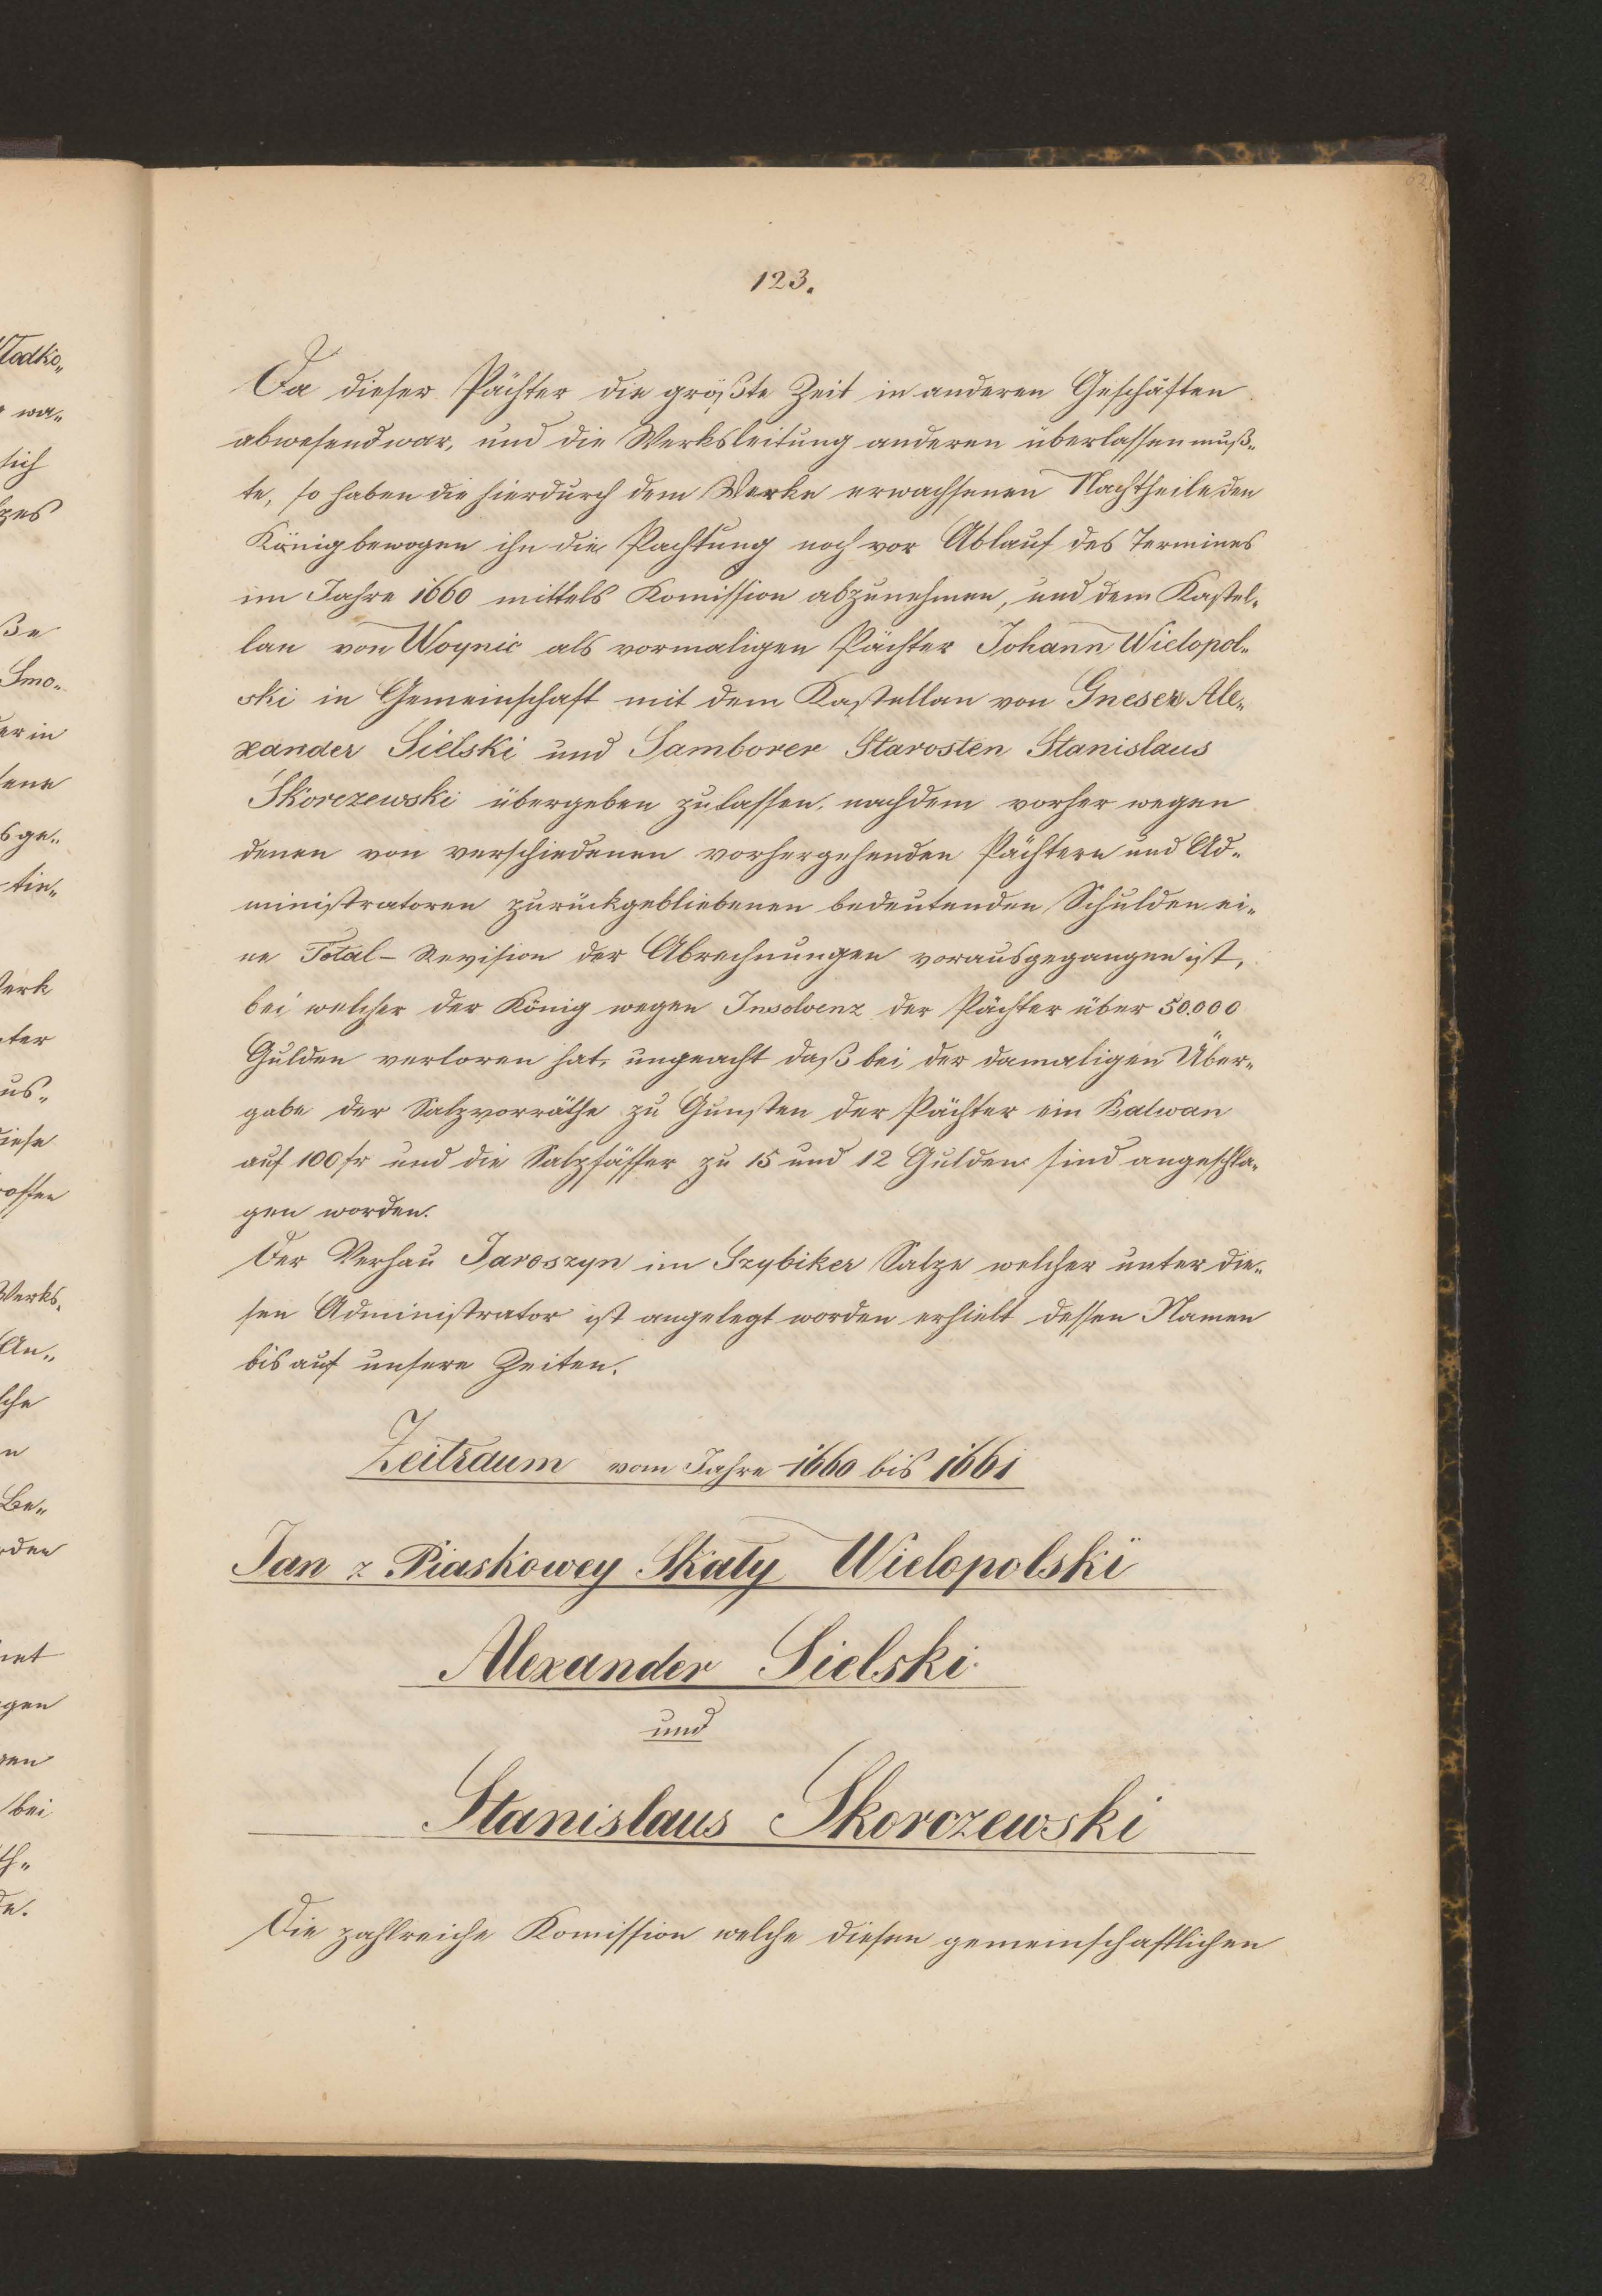 123.
Da dieser Pächter die größte Zeit in anderen Geschäften
abwesend war, und die Werksleitung anderen überlassen muß„
te, so haben die hierdurch dem Werke erwachsenen Nachtheile den
König bewogen ihn die Pachtung noch vor Ablauf des Termines
im Jahre 1660 mittels Komission abzunehmen, und dem Kastel„
lan von Woynic als vormaligen Pächter Johann Wielopol„
ski in Gemeinschaft mit dem Kastellan von Gnesen Ale„
xander Sielski und Samborer Starosten Stanislaus
Skorczewski übergeben zu lassen, nachdem vorher wegen
denen von verschiedenen vorhergehenden Pächtern und Ad„
ministratoren zurückgebliebenen bedeutenden Schulden ei„
ne Total - Revision der Abrechnungen vorausgegangen ist,
bei welcher der König wegen Insolvenz der Pächter über 50.000
Gulden verloren hat, ungeacht daß bei der damaligen Über„
gabe der Salzvorräthe zu Gunsten der Pächter ein Balwan
auf 100 fr und die Salzfässer zu 15 und 12 Gulden sind angeschla„
gen worden.
Der Verhau Jaroszyn im Szybiker Salze welcher unter die„
sen Administrator ist angelegt worden erhielt dessen Namen
bis auf unsere Zeiten.
Zeitraum vom Jahre 1660 bis 1661
Jan z Piaskowey Skały Wielopolski
Alexander Sielski
und
Stanislaus Skorczewski
Die zahlreiche Komission welche diesen gemeinschaftlichen